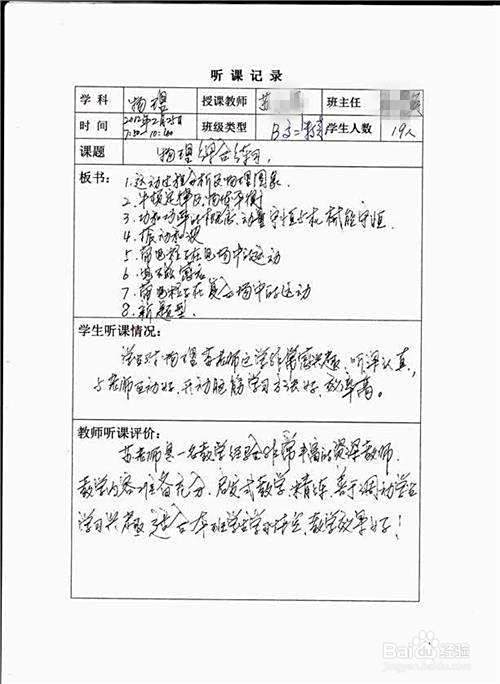 听课记录
学科 物理 授课教师 苏 班主任
时间 2012年2月25日 班级类型 学生人数 19人
7:50-10:00
课题 物理综合练习
板书: 1.运动过程分析及物理图象
2.牛顿定律及物体平衡
3.功和功率的概念、动量守恒与机械能守恒
4.振动和波
5.带电粒子在电场中的运动
6.电磁感应
7.带电粒子在复合场中的运动
8.新题型
学生听课情况:
学生对物理 老师 非常感兴趣,听课认真,
与老师互动好,开动脑筋学习方法好,效率高。
教师听课评价:
苏老师是一名教学经验非常丰富的资深教师.
教学内容准备充分,启发式教学,精练,善于调动学生
学习兴趣,适合本班学生学习 ,教学效果好!
Baidu经验
jingyan.baidu.com